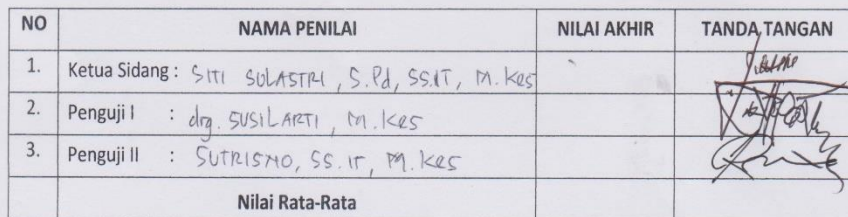 NO NAMA PENILAI NILAI AKHIR TANDA TANGAN
1. Ketua Sidang : SITI SULASTRI, S.Pd, SS.iT, M.Kes
2. Penguji I : drg. SUSILARTI, M.Kes
3. Penguji II : SUTRISNO, SS.iT, M.Kes
Nilai Rata-Rata